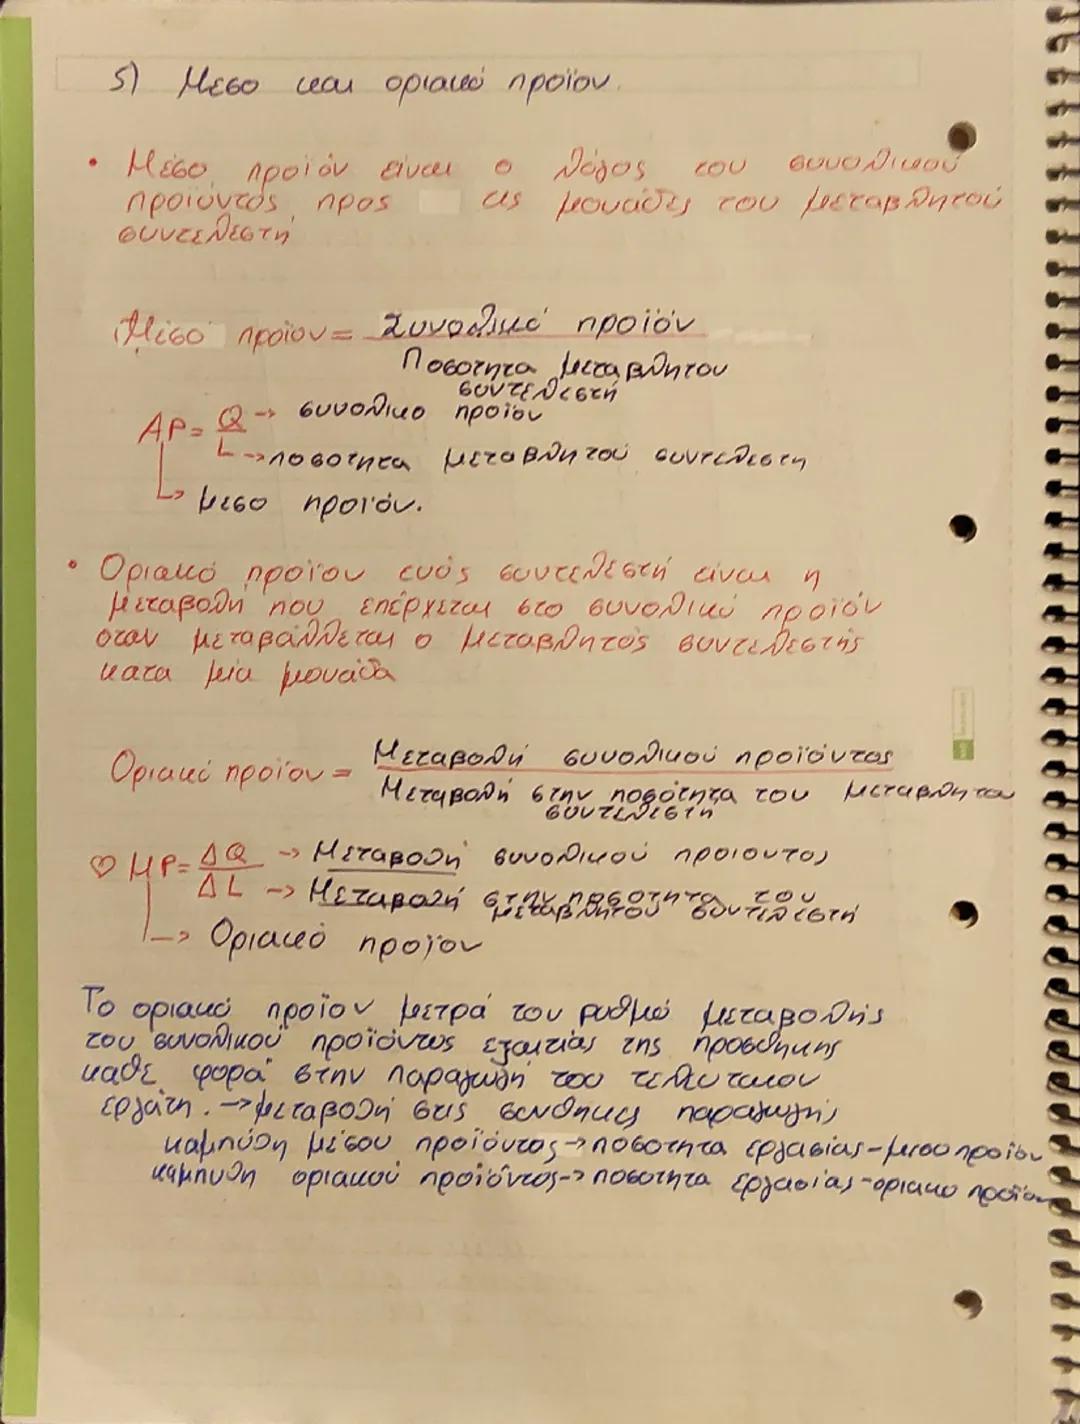 5) Μέσο και οριακό προϊον.
• Μέσο προϊόν είναι ο λόγος του συνολικού
προϊόντος προς τις μονάδες του μεταβλητού
συντελεστή
Μέσο προϊον = Συνολικό προϊόν
Ποσοτητα μεταβλητου
συντελεστή
AP = Q → συνολικο προϊον
L → ποσοτητα μεταβλητού συντελεστη
↳ μεσο προϊόν.
• Οριακό προϊον ενός συντελεστή είναι η
μεταβολή που επέρχεται στο συνολικό προϊόν
οταν μεταβάλλεται ο μεταβλητός συντελεστής
κατα μία μονάδα
Οριακό προϊον = Μεταβολή συνολικού προϊόντος
Μεταβολή στην ποσότητα του μεταβλητου
συντελεστή
♡ MP = ΔQ → Μεταβολή συνολικού προιοντος
ΔL → Μεταβολή στην ποσοτητα του
μεταβλητού συντελεστή
↳ Οριακό προϊον
Το οριακό προϊον μετρά τον ρυθμό μεταβολής
του συνολικού προϊόντος εξαιτίας της προσθηκης
καθε φορά στην παραγωγή του τελευταιου
εργάτη. → μεταβολή στις συνθηκες παραγωγής
καμπύλη μέσου προϊόντος → ποσοτητα εργασίας - μεσο προϊον
καμπυλη οριακού προϊόντος → ποσοτητα εργασίας - οριακο προϊον